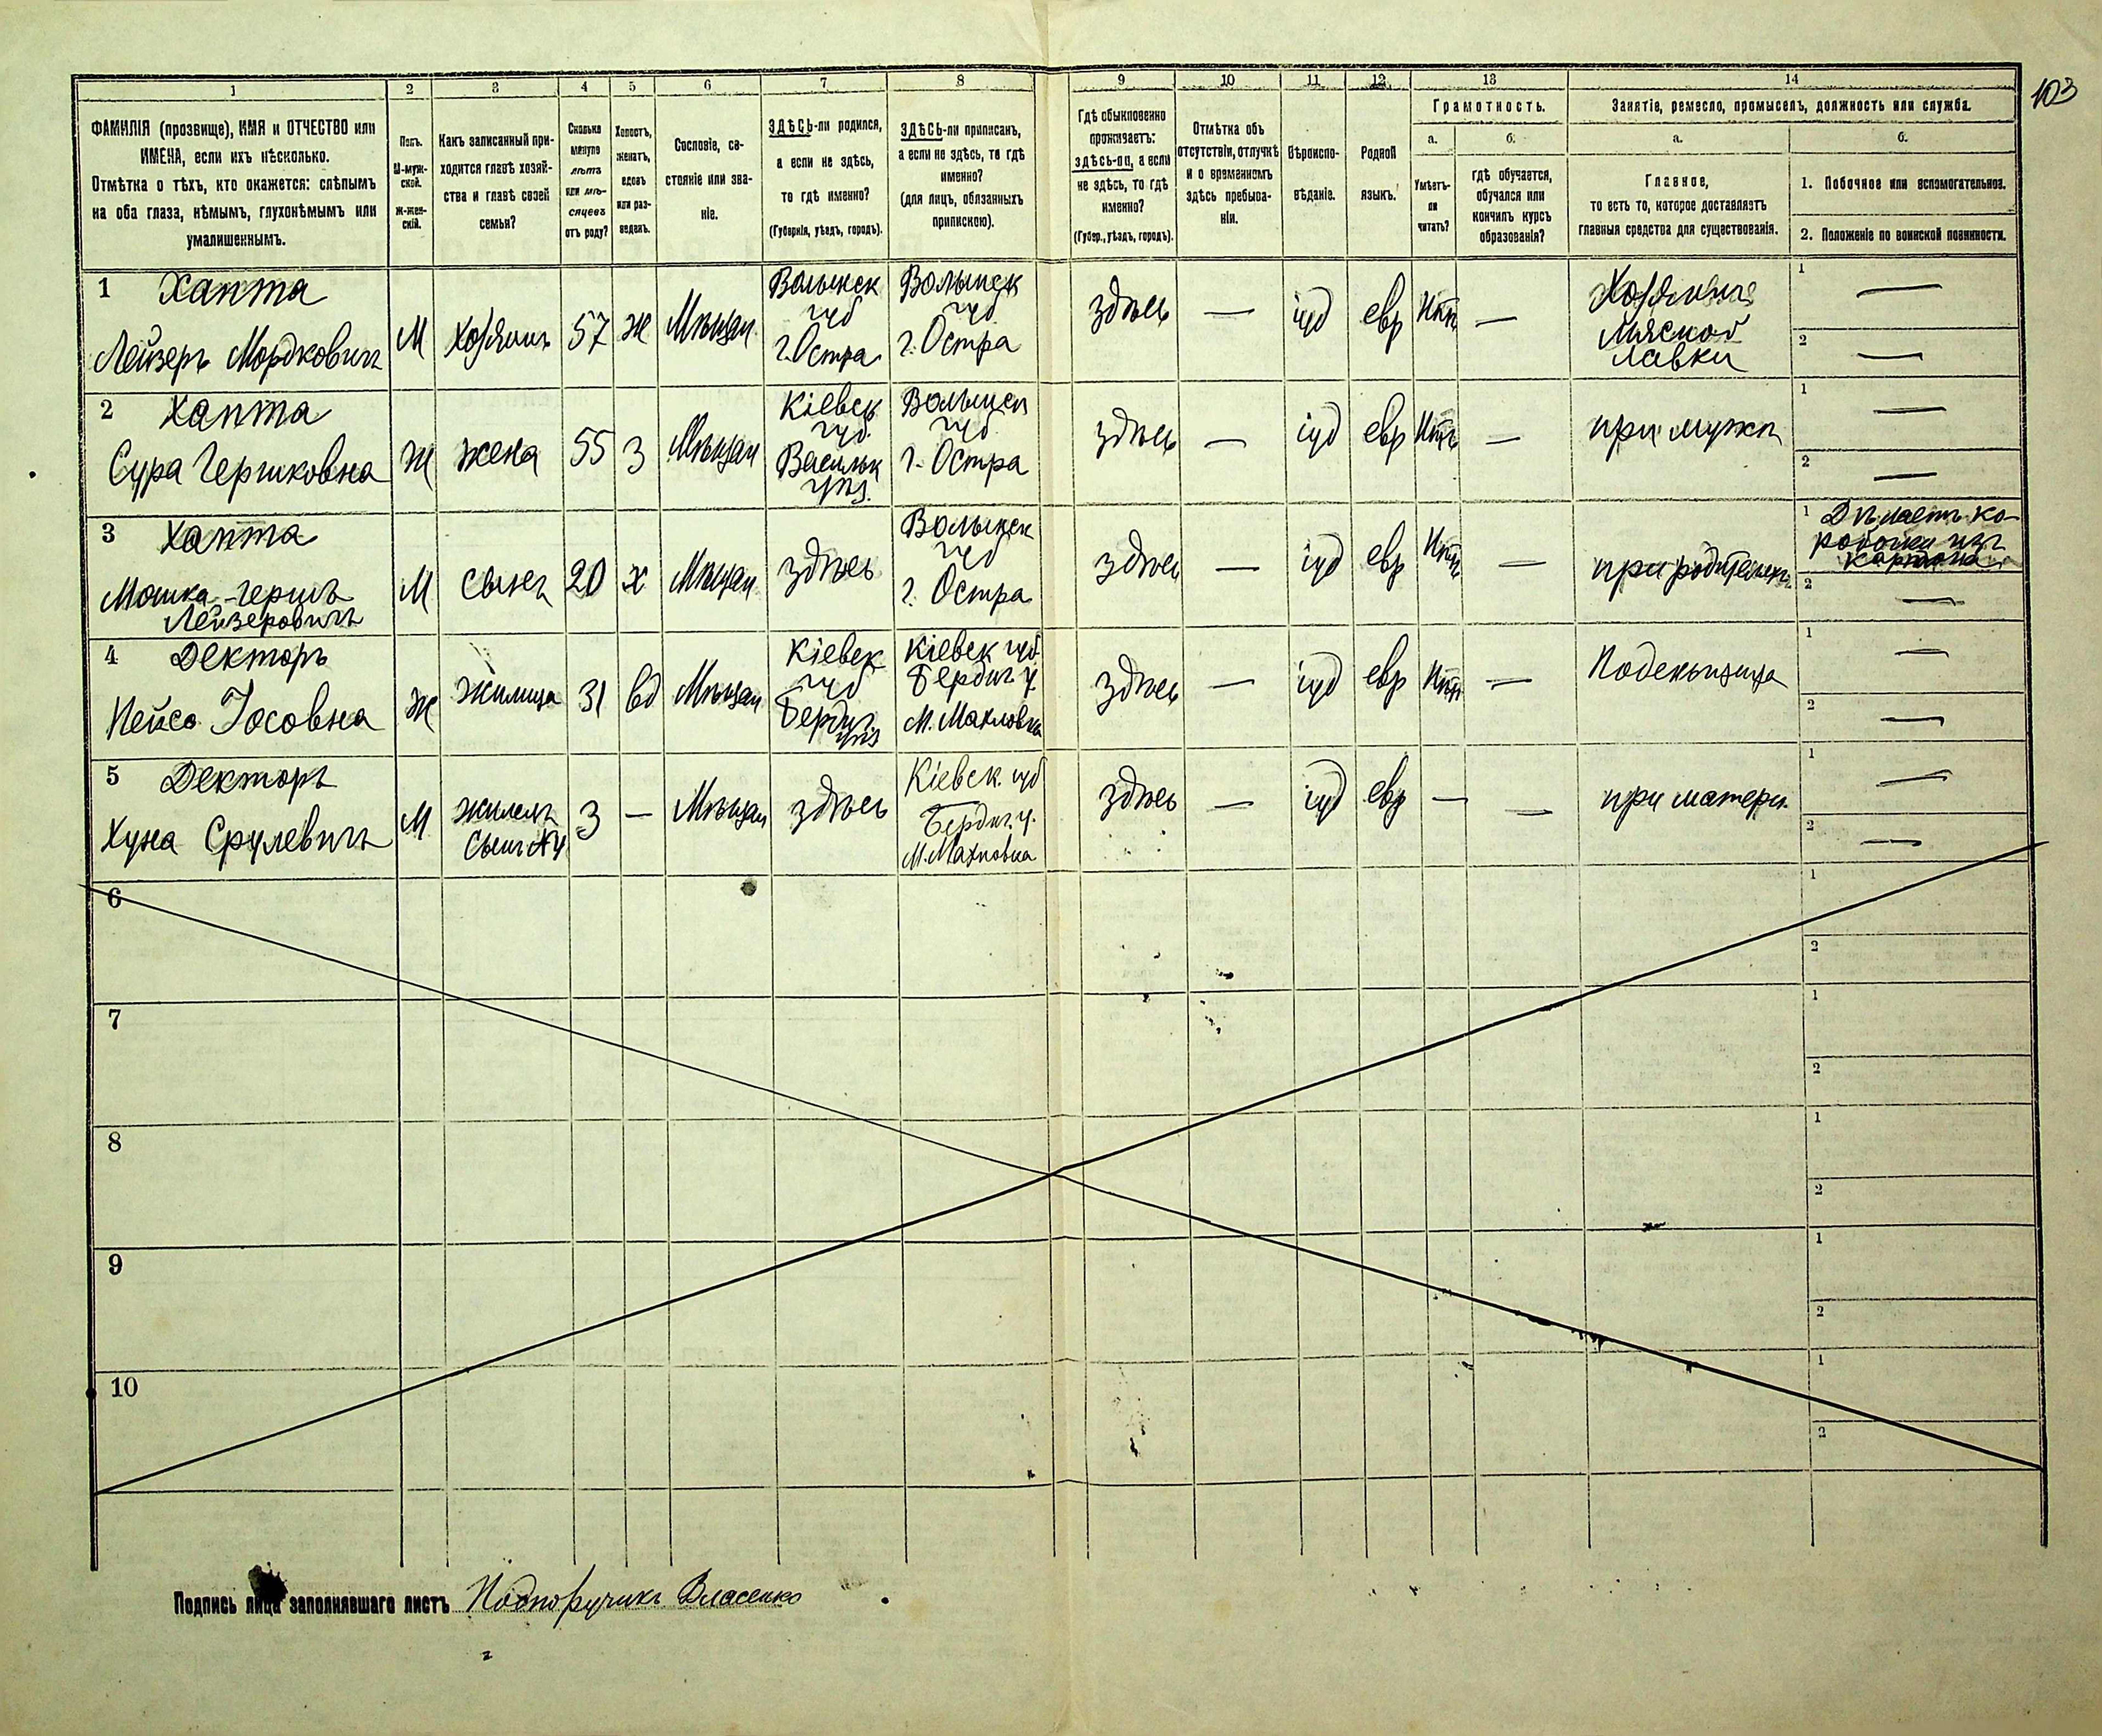 103
1 2 3 4 5 6 7 8 9 10 11 12 13 14
ФАМИЛІЯ (прозвище), ИМЯ и ОТЧЕСТВО или
ИМЕНА, если ихъ нѣсколько.
Отмѣтка о тѣхъ, кто окажется: слѣпымъ
на оба глаза, нѣмымъ, глухонѣмымъ или
умалишеннымъ.
Полъ.
М-муж-
ской.
Ж-жен-
скій.
Какъ записанный при-
ходится главѣ хозяй-
ства и главѣ своей
семьи?
Сколько
минуло
лѣтъ
или мѣ-
сяцевъ
отъ роду?
Холостъ,
женатъ,
вдовъ
или раз-
веденъ.
Сословіе, со-
стояніе или зва-
ніе.
ЗДѢСЬ-ли родился,
а если не здѣсь,
то гдѣ именно?
(Губернія, уѣздъ, городъ).
ЗДѢСЬ-ли приписанъ,
а если не здѣсь, то гдѣ
именно?
(для лицъ, обязанныхъ
припискою).
Гдѣ обыкновенно
проживаетъ:
здѣсь-ли, а если
не здѣсь, то гдѣ
именно?
(Губер., уѣздъ, городъ).
Отмѣтка объ
отсутствіи, отлучкѣ
и о временномъ
здѣсь пребыва-
ніи.
Вѣроиспо-
вѣданіе.
Родной
языкъ.
Грамотность.
а.
Умѣетъ-
ли
читать?
б.
гдѣ обучается,
обучался или
кончилъ курсъ
образованія?
Занятіе, ремесло, промыселъ, должность или служба.
а.
Главное,
то есть то, которое доставляетъ
главныя средства для существованія.
б.
1. Побочное или вспомогательное.
2. Положеніе по воинской повинности.
1 Хапта
Лейзеръ Мордковичъ
М
Хозяинъ
57
ж
Мѣщан.
Волынск
губ
г. Остра
Волынск
губ
г. Остра
здѣсь
—
іуд
евр
Нѣтъ
—
Хозяинъ
Мясной
лавки
1 —
2 —
2 Хапта
Сура Гершковна
Ж
жена
55
З
Мѣщан
Кіевск
губ.
Васильк
уѣз.
Волынск
губ
г. Остра
здѣсь
—
іуд
евр
Нѣтъ
—
при мужѣ
1 —
2 —
3 Хапта
Мошка-Гершъ
Лейзеровичъ
М
сынъ
20
х
Мѣщан
здѣсь
Волынск
губ
г. Остра
здѣсь
—
іуд
евр
Нѣтъ
—
при родителяхъ
1 Дѣлаетъ ко-
робочки изъ
картона
2 —
4 Декторъ
Пейса Іосовна
Ж
Жилица
31
вд
Мѣщан
Кіевск
губ
Бердич.
уѣз
Кіевск губ
Бердич у.
М. Махновка
здѣсь
—
іуд
евр
Нѣтъ
—
Поденьщица
1 —
2 —
5 Декторъ
Хуна Срулевичъ
М
жилецъ
Сынъ №4
3
—
Мѣщан
здѣсь
Кіевск. губ
Бердич. у.
М. Махновка
здѣсь
—
іуд
евр
—
—
при матери
1 —
2 —
6
1
2
7
1
2
8
1
2
9
1
2
10
1
2
Подпись лица заполнявшаго листъ Подпоручикъ Власенко